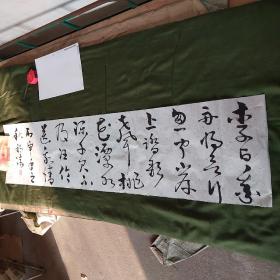 李白乘
舟将欲行
忽闻岸
上踏歌
声桃
花潭水
深千尺不
及汪伦
送我情